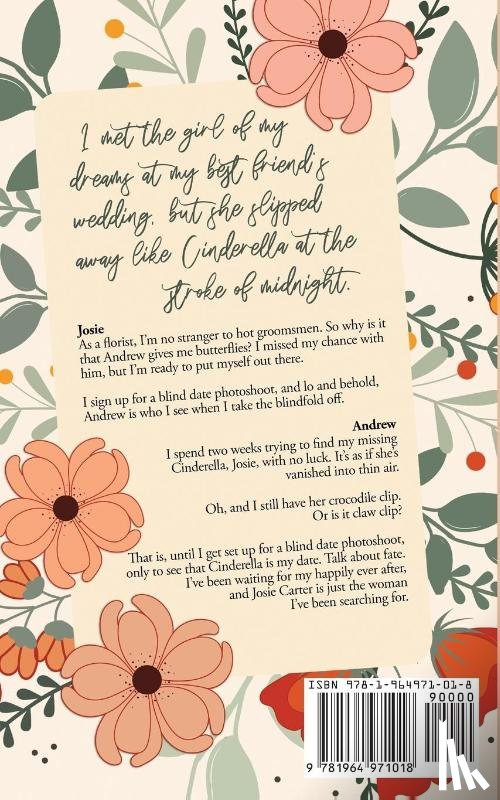 I met the girl of my
dreams at my best friend's
wedding, but she slipped
away like Cinderella at the
stroke of midnight.
Josie
As a florist, I'm no stranger to hot groomsmen. So why is it
that Andrew gives me butterflies? I missed my chance with
him, but I'm ready to put myself out there.
I sign up for a blind date photoshoot, and lo and behold,
Andrew is who I see when I take the blindfold off.
Andrew
I spend two weeks trying to find my missing
Cinderella, Josie, with no luck. It's as if she's
vanished into thin air.
Oh, and I still have her crocodile clip.
Or is it claw clip?
That is, until I get set up for a blind date photoshoot,
only to see that Cinderella is my date. Talk about fate.
I've been waiting for my happily ever after,
and Josie Carter is just the woman
I've been searching for.
ISBN 978-1-964971-01-8
90000
9 781964 971018